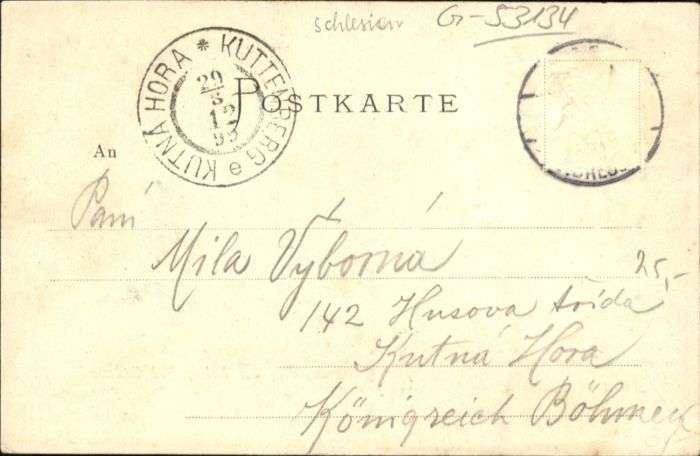 Schlesien G-53134
KUTNÁ HORA * KUTTENBERG e
29
3
12
98
POSTKARTE
An
Paní
Mila Výborná
25,-
142 Husova třída
Kutná Hora
Königreich Böhmen